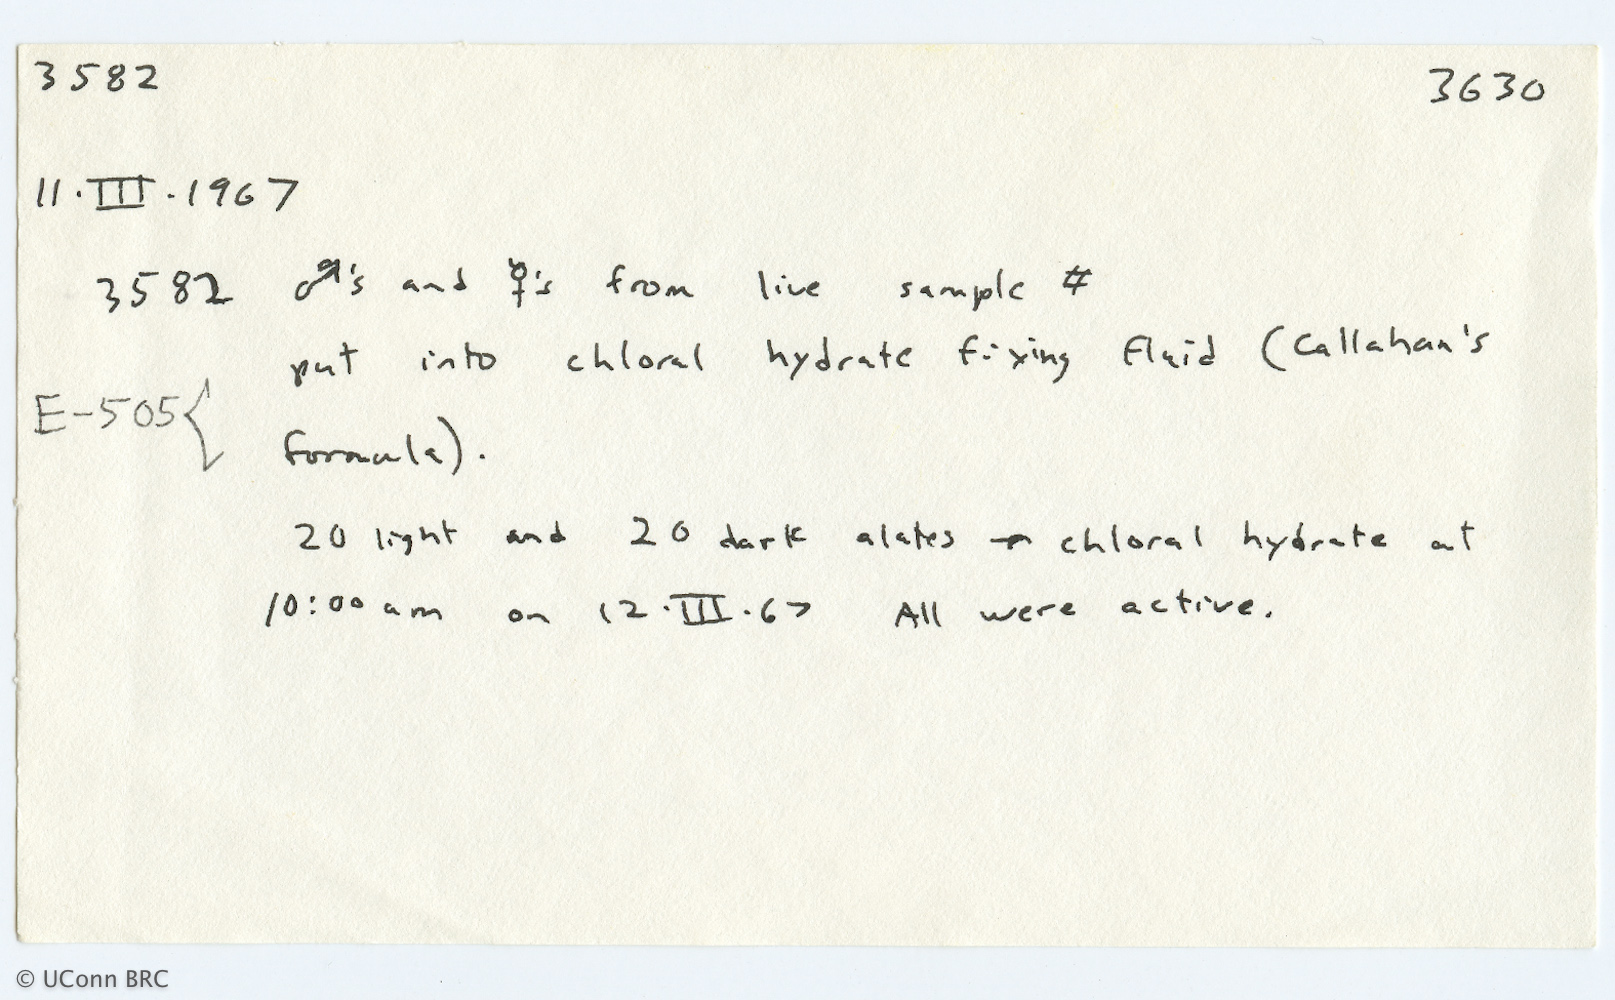 3582 3630
11·III·1967
3582 ♂'s and ♀'s from live sample #
put into chloral hydrate fixing fluid (Callahan's
E-505{
formula).
20 light and 20 dark alates → chloral hydrate at
10:00 am on 12·III·67 All were active.
© UConn BRC